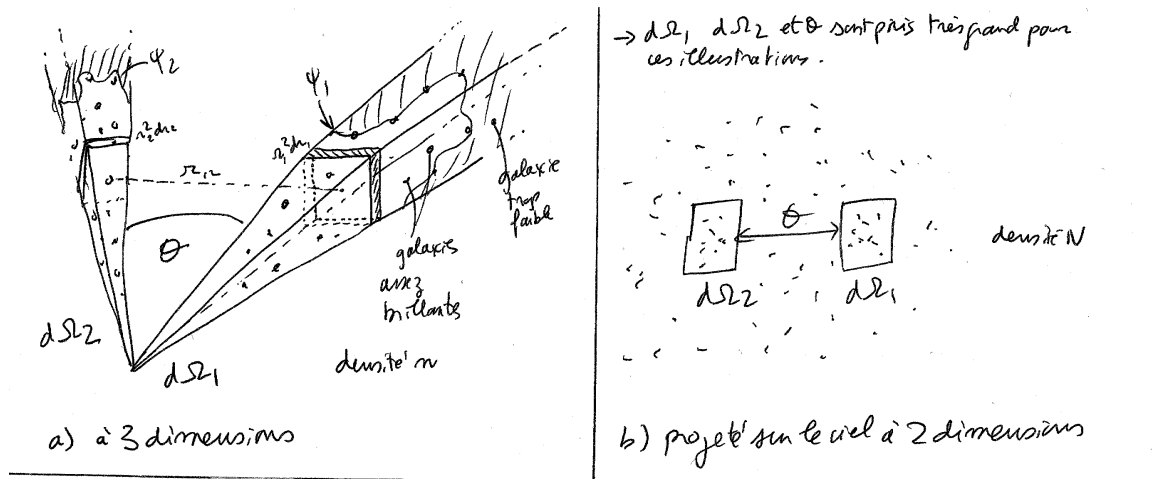 φ2
φ1
r2²dr2
r1²dr1
r12
galaxie
trop
faible
θ
galaxies
assez
brillantes
dΩ2
dΩ1
densité n
a) à 3 dimensions
→ dΩ1 dΩ2 et θ sont pris très grand pour
ces illustrations.
θ
densité N
dΩ2
dΩ1
b) projeté sur le ciel à 2 dimensions